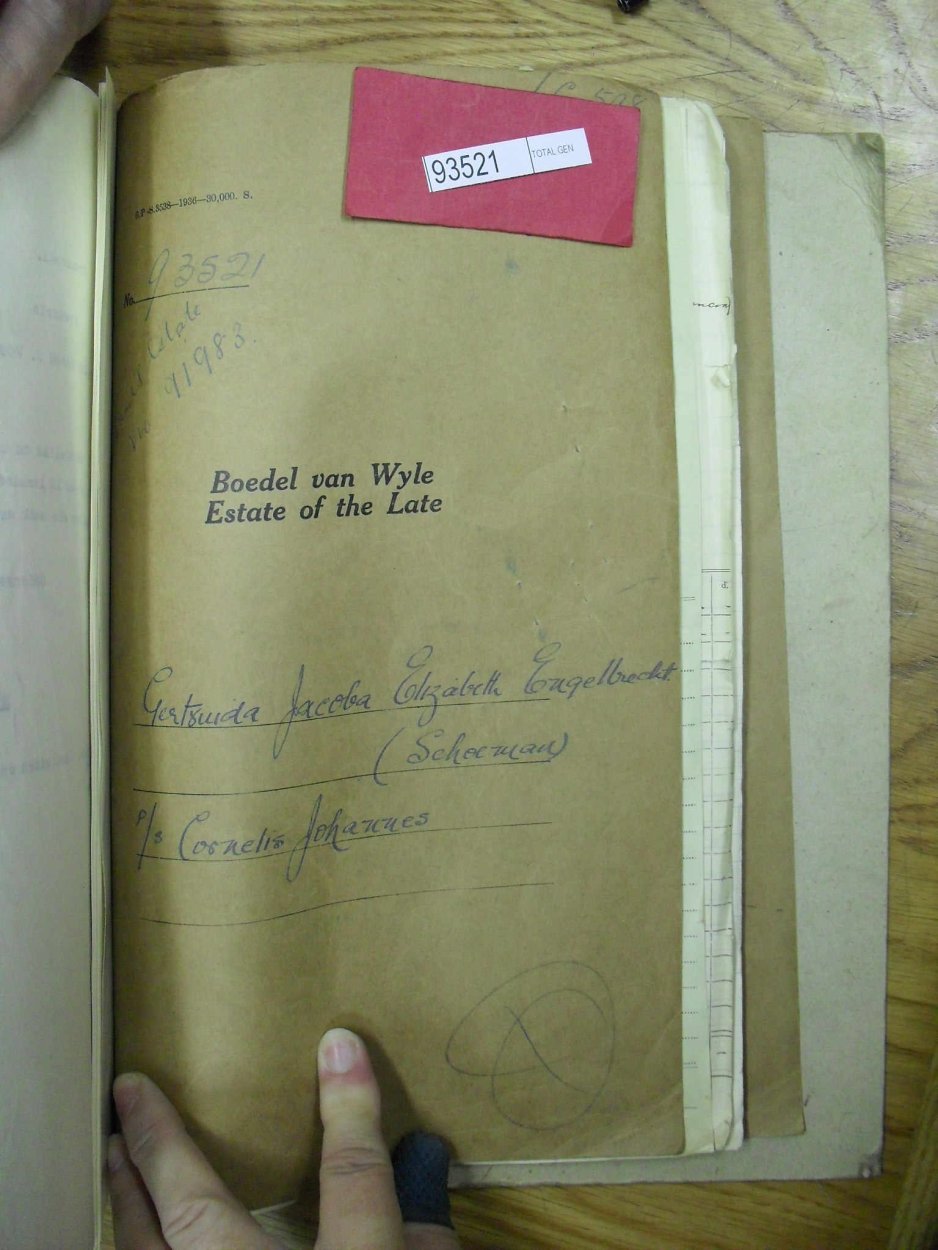 93521 TOTAL GEN
G.P.-S.3538—1936—30,000. S.
No. 93521
Estate
91983.
Boedel van Wyle
Estate of the Late
Gertruida Jacoba Elizabeth Engelbrecht
(Schoeman)
p/s Cornelis Johannes